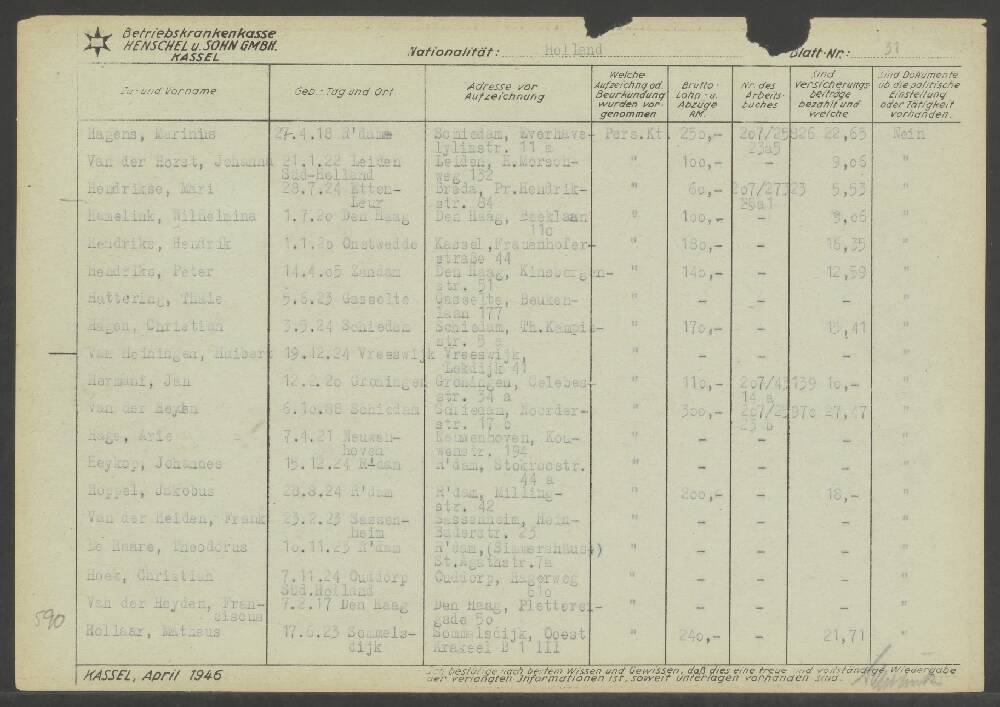 Betriebskrankenkasse
HENSCHEL u. SOHN GMBH.
KASSEL
Nationalität: Holland
Blatt-Nr.: 31
Zu- und Vorname
Geb.-Tag und Ort
Adresse vor Aufzeichnung
Welche Aufzeichng od. Beurkundung wurden vorgenommen
Brutto-Lohn- u. Abzüge RM.
Nr. des Arbeitsbuches
Sind Versicherungsbeiträge bezahlt und welche
Sind Dokumente üb. die politische Einstellung oder Tätigkeit vorhanden.
Hagens, Marinius 24.4.18 R'dam Schiedam, Everhave- Pers.Kt. 250,- 207/25826 22,65 Nein
lylinstr. 11 a 23a5
Van der Horst, Johanna 21.1.22 Leiden Leiden, H.Morsch- " 100,- - 9,06 "
Süd-Holland weg 132
Hendrikse, Mari 28.7.24 Etten- Breda, Pr.Hendrik- " 60,- 207/27323 5,53 "
Leur str. 84 23a1
Hamelink, Wilhelmina 1.7.20 Den Haag Den Haag, Beeklaan " 100,- - 9,06 "
110
Hendriks, Hendrik 1.1.20 Onstwedde Kassel, Frauenhofer- " 180,- - 16,35 "
straße 44
Hendriks, Peter 14.4.05 Zandam Den Haag, Kinsbergen- " 140,- - 12,59 "
str. 51
Hattering, Thale 5.6.23 Gasselte Gasselte, Beuken- " - - - "
laan 177
Hagen, Christian 3.5.24 Schiedam Schiedam, Th.Kampie- " 170,- - 15,41 "
str. 5 a
Van Heiningen, Huibert 19.12.24 Vreeswijk Vreeswijk, " - - - "
Lekdijk 41
Hermani, Jan 12.2.20 Groningen Groningen, Celebes- " 110,- 207/43139 10,- "
str. 34 a 14 a
Van der Heyden 6.10.88 Schiedam Schiedam, Noorder- " 300,- 207/25970 27,47 "
str. 17 b 23 b
Hage, Arie 7.4.21 Neuwen- Neuwenhoven, Kou- " - - - "
hoven wenstr. 194
Heykop, Johannes 15.12.24 R'dam R'dam, Stokroostr. " - - - "
44 a
Hoppel, Jakobus 28.8.24 R'dam R'dam, Milling- " 200,- - 18,- "
str. 42
Van der Heiden, Frank 23.2.23 Sassen- Sassenheim, Hein- " - - - "
heim Baderstr. 23
Le Haare, Theodorus 10.11.23 R'dam R'dam,(Simmershäus.) " - - - "
St.Agathstr.7a
Hoek, Christian 7.11.24 Ouddorp Ouddorp, Hagerweg " - - - "
Süd.Holland 610
Van der Heyden, Fran- 7.2.17 Den Haag Den Haag, Pletterei- " - - - "
ciscus gade 50
590
Hollaar, Matheus 17.6.23 Sommels- Sommelsdijk, Ooest " 240,- - 21,71 "
dijk Krakeel B 1 III
KASSEL, April 1946
Ich bestätige nach bestem Wissen und Gewissen, daß dies eine treue und vollständige Wiedergabe
der verlangten Informationen ist, soweit Unterlagen vorhanden sind.